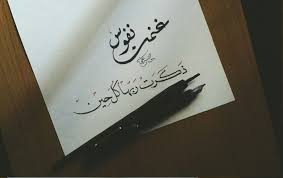 غنمت نفوس
ذكرت ربها كل حين